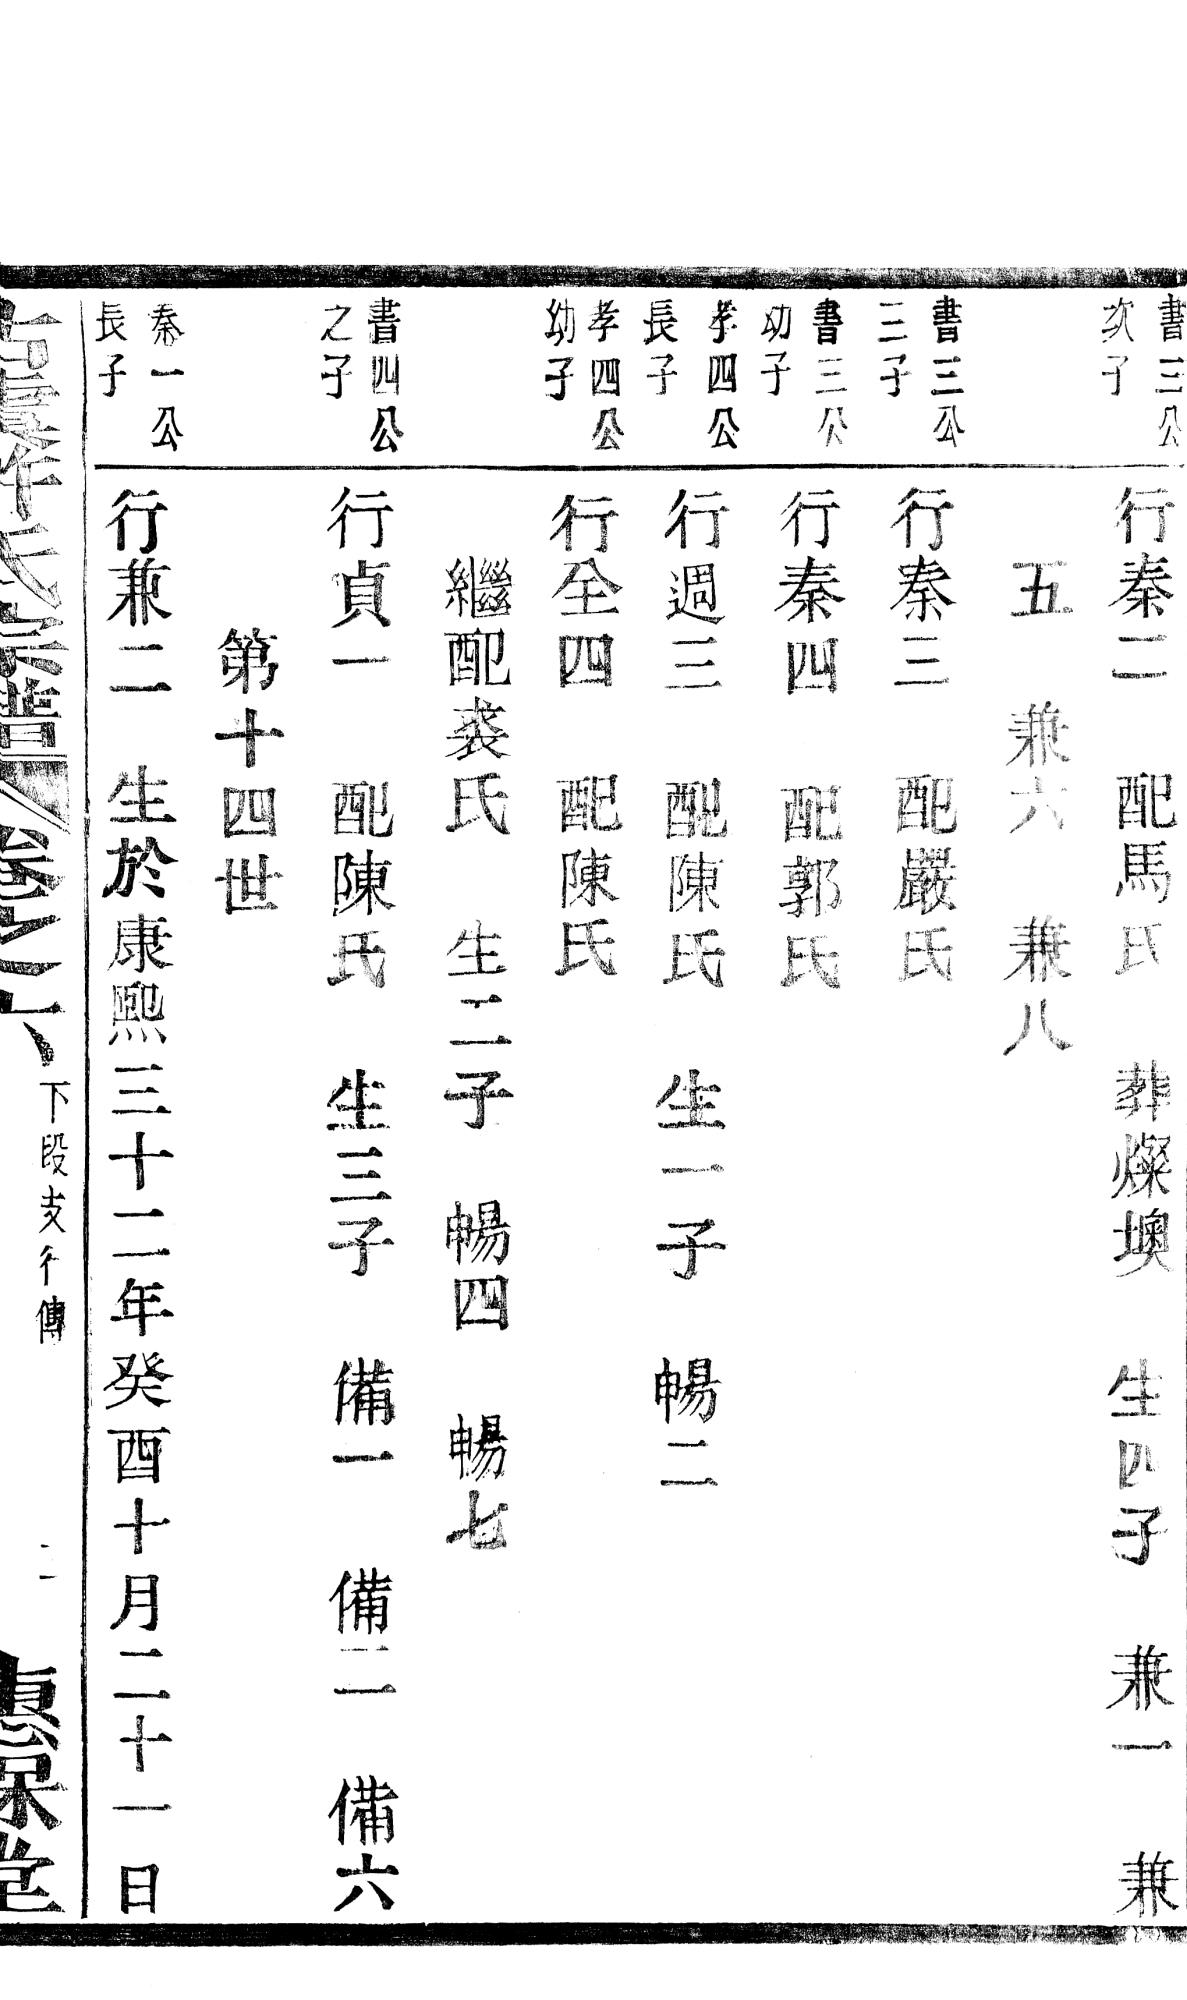 書三公
次子
行秦二　配馬氏　葬燦墺　生四子　兼一　兼
五　兼六　兼八
書三公
三子
行秦三　配嚴氏
書三公
幼子
行秦四　配郭氏
孝四公
長子
行週三　配陳氏　生一子　暢二
孝四公
幼子
行全四　配陳氏
繼配裘氏　生二子　暢四　暢七
書四公
之子
行貞一　配陳氏　生三子　備一　備二　備六
第十四世
秦一公
長子
行兼二　生於康熙三十二年癸酉十月二十一日
氏宗譜　卷之六　下段支行傳　二　堂